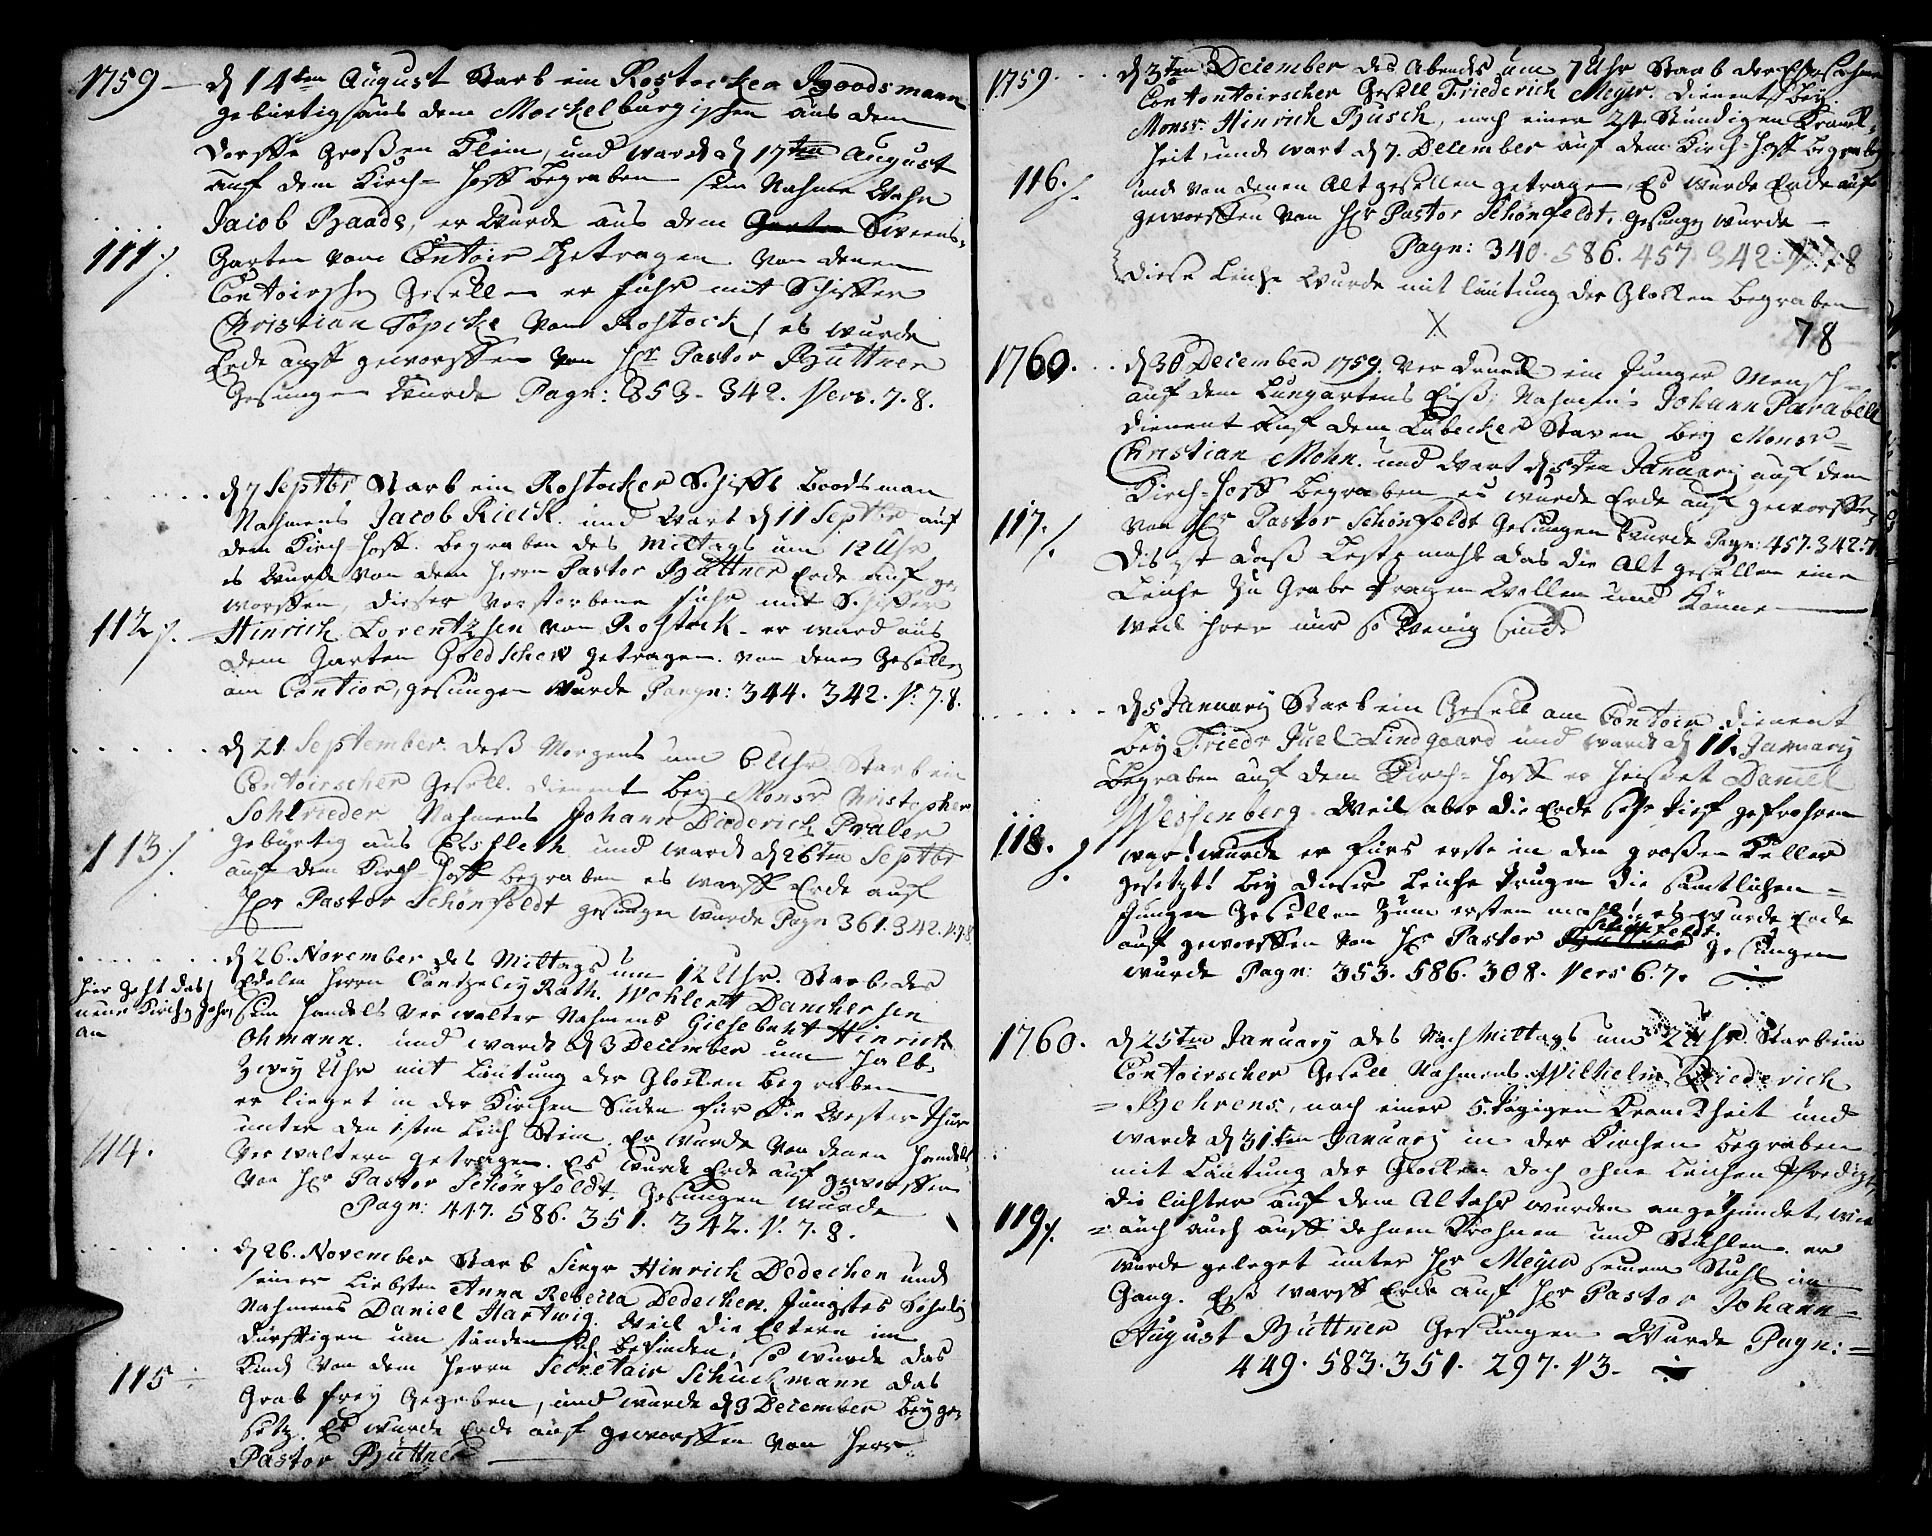 1759 — d 14ten August Starb ein Rostocker Boodsmann
gebürtig aus dem Meckelburgischen aus dem
Dorffe Großen Klein, und ward d 17ten August
auf dem Kirch-Hoff begraben sein Nahme Wahr
Jacob Baads, er wurde aus dem Garten Sweens-
111 /. Garten vom Contoir Getragen von denen
Contoirschen Gesellen er fuhr mit Schiffer
Christian Töpcke von Rostock / es wurde
Erde auff geworffen von Hr Pastor Büttner
Gesungen Wurde Pagn: 853 - 342. Vers. 7. 8.
d 7 Septbr Starb ein Rostocker Schiffs Boodsman
Nahmens Jacob Rieck und Wart d 11 Septbr auf
dem Kirch Hoff begraben des Mittags um 12 Uhr
es wurde von dem Herrn Pastor Büttner Erde auf ge-
worffen, dieser verstorbene fuhr mit Schiffer
112 /. Hinrich Lorentzsen von Rostock - er ward aus
dem Garten Goldschew getragen von denen Gesellen
am Contior, gesungen wurde Pangn: 344. 342. V. 7. 8.
d 21. September. deß Morgens um 6 Uhr Starb ein
Contoirscher Gesell. dienent bey Monsr Christopher
Sohlrieder Nahmens Johann Diederich Praler
113 /. gebürtig aus Elsfleth und wardt d 26ten Septbr
auf dem Kirch-Hoff begraben es warff Erde auf
Hr Pastor Schönfeldt gesungen wurde Pagn 361. 342. V. 7. 8.
d 26. November des Mittags um 12 Uhr. Starb, des
hier geht das Edelen Herrn Cantzeley Rath. Wohlert Danckersen
neue Kirchen Jahr sein Handels Verwalter Nahmens Giesebert Hinrich
an Ohmann. und wardt d 3 December um halb
Zwey Uhr mit Läutung der Glocken begraben
er lieget in der Kirchen Süden für die Wester Thür
unter den 1sten Leich Stein. Er wurde von denen Handels
114. Verwaltern getragen. Es wurde Erde auf geworffen
von Hr Pastor Schönfeldt. Gesungen wurde
Pagn: 447. 586. 351. 342. V. 7. 8.
d 26. November Starb Singr Hinrich Dedechen und
seiner Liebsten Anna Rebecca Dedechen. Jüngstes Söhnlein
Nahmens Daniel Hartwig. Weil die Eltern im
dürfftigen um ständen sich befinden, so wurde das
115 Kind von dem Herrn Secretair Schuckmann das
Grab frey Gegeben, und wurde d 3 December beyge-
setz. Es wurde Erde auf geworffen von Herr
Pastor Büttner
1759. d 3ten December des Abends um 7 Uhr Starb der
Contontoirscher Gesell Friederich Meyer. dienent bey
Monsr. Hinrich Busch, nach einer Stündigen Kranck-
heit, und wart d 7. December auf dem Kirch-Hoff begraben
116. /. und von denen Altgesellen getragen, Es wurde Erde auf
geworffen von Hr Pastor Schönfeldt, gesungen wurde —
Pagn: 340. 586. 457. 342. V. 7. 8
diese Leiche wurde mit läutung der Glocken begraben
X 78
1760. d 30 December 1759. Verdrunck ein Junger Mensch
auf dem Lungartens Eiß, Nahmens Johann Parabell
dienent auf dem Lübecker Staven bey Monsr
Christian Mohn. und Wart d 5ten January auf dem
Kirch-Hoff begraben es wurde Erde auf geworffen
117. /. von Hr Pastor Schönfeldt Gesungen wurde Pagn: 457. 342. 7.
Dis ist daß Leste mahl das die Alt gesellen eine
Leiche zu Grabe tragen Wollen und Könne
Weil Herr nur so wenig Sind
d 5 January Starb ein Gesell am Contoir, dienent
bey Friedr Juel Lindgaard und wardt d 11. January
Begraben auf dem Kirch-Hoff er heisset Daniel
Weissenberg. Weil aber die Erde sehr tieff gefrohren
118. /. war! wurde er fürs erste in den großen Keller
gesetzt! bey dieser Leiche trugen die sämtlichen
Jungen Gesellen zum ersten mahl! es wurde Erde
Schönfeldt.
auf geworffen von Hr Pastor Büttner gesungen
wurde Pagn: 353. 586. 308. Vers 6. 7.
1760. d 25ten January des Nach Mittags um 2 Uhr Starb ein
Contoirscher Gesell Nahmens Wilhelm Diederich
Behrens, nach einer 5. tägigen Kranckheit und
wardt d 31ten January in der Kirchen begraben
mit Läutung der Glocken doch ohne Leichen Predigt,
die lichter auf dem Altahr wurden angezündet, wie
119 /. auch auch auff dehnen Krohnen und Stühlen er
wurde geleget unter Hr Meyer seinem Stuhl im
Gang. Eß warff Erde auf Hr Pastor Johann
August Büttner Gesungen Wurde Pagn:
449. 583. 351. 297. V 3.